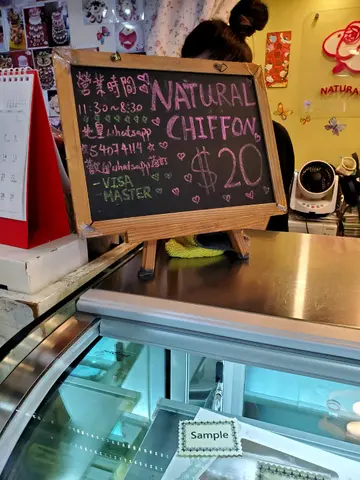 營業時間
11:30~8:30
NATURAL
CHIFFON
$20
whatsapp
54074114
-VISA
MASTER
NATURA
Sample